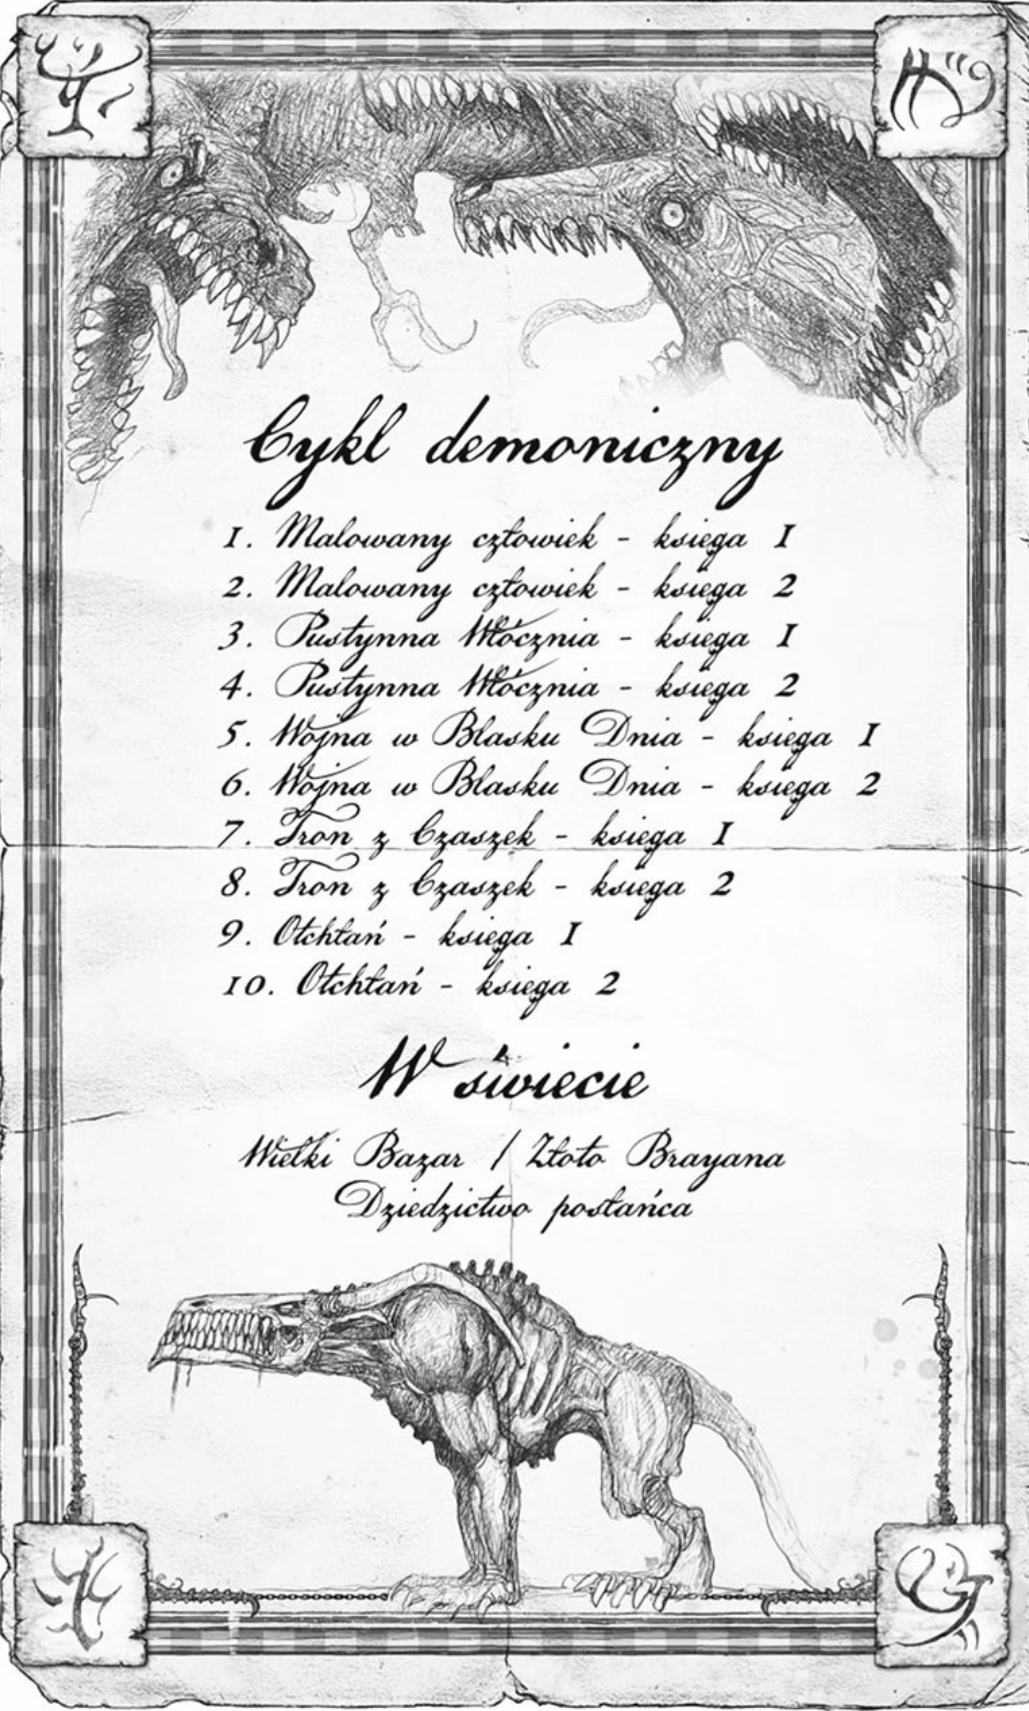 Cykl demoniczny
1. Malowany człowiek - księga I
2. Malowany człowiek - księga 2
3. Pustynna Włócznia - księga I
4. Pustynna Włócznia - księga 2
5. Wojna w Blasku Dnia - księga I
6. Wojna w Blasku Dnia - księga 2
7. Tron z Czaszek - księga I
8. Tron z Czaszek - księga 2
9. Otchłań - księga I
10. Otchłań - księga 2
W świecie
Wielki Bazar / Złoto Brayana
Dziedzictwo posłańca